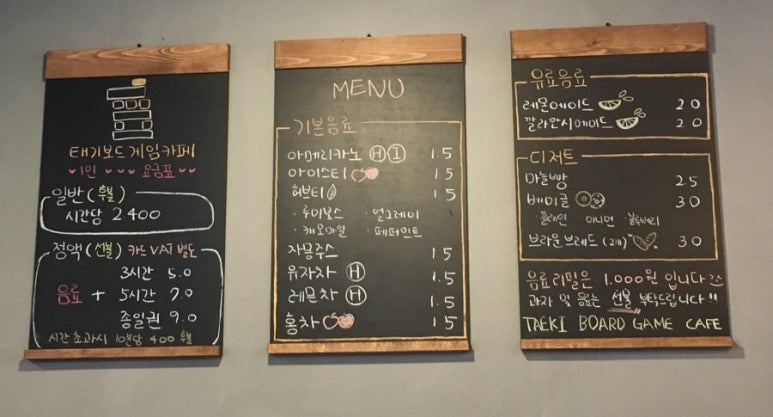 태기보드게임카페
1인 요금표
일반 (후불)
시간당 2400
정액 (선불) 카드 VAT 별도
음료 +
3시간 5.0
5시간 7.0
종일권 9.0
시간 초과시 10분당 400 후불
MENU
기본음료
아메리카노 H I 1.5
아이스티 1.5
허브티 1.5
· 루이보스 · 얼그레이
· 캐모마일 · 페퍼민트
자몽주스 1.5
유자차 H 1.5
레몬차 H 1.5
홍차 1.5
유료음료
레몬에이드 2.0
깔라만시에이드 2.0
디저트
마늘빵 2.5
베이글 3.0
· 플레인 · 어니언 · 블루베리
브라운브레드 (2개) 3.0
음료 리필은 1.000원 입니다
과자 및 음료는 선불 부탁드립니다!!
TAEKI BOARD GAME CAFE